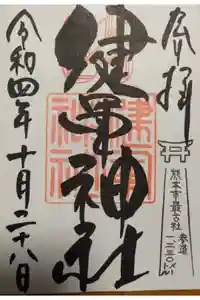 奉拝
熊本市最古社
参道
一二三〇メートル
健軍神社
令和四年十月二十八日